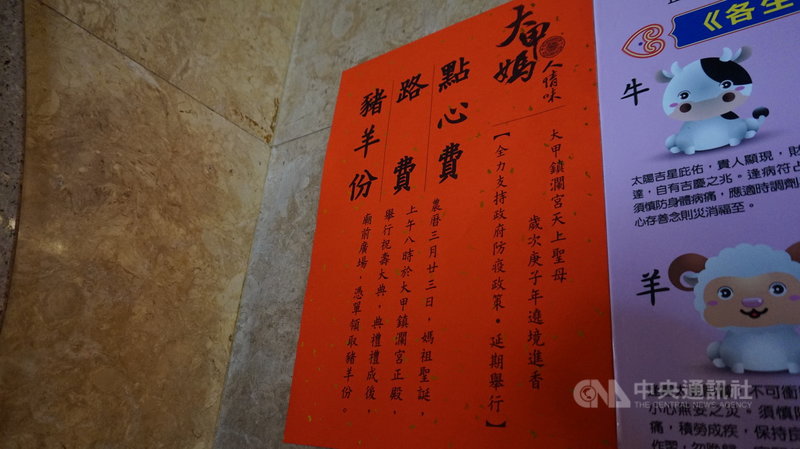 大甲媽
人情味
大甲鎮瀾宮天上聖母
歲次庚子年遶境進香
【全力支持政府防疫政策・延期舉行】
點心費
路費
豬羊份
農曆三月廿三日，媽祖聖誕，
上午八時於大甲鎮瀾宮正殿，
舉行祝壽大典，典禮禮成後，
廟前廣場，憑單領取豬羊份。
《各生
牛
太陽吉星庇佑，貴人顯現，財
達，自有吉慶之兆。達病符占
須慎防身體病痛，應適時調劑
心存善念則災消福至。
羊
不可衝
小心無妄之災。須慎防
痛，積勞成疾，保持良
CNA 中央通訊社
THE CENTRAL NEWS AGENCY